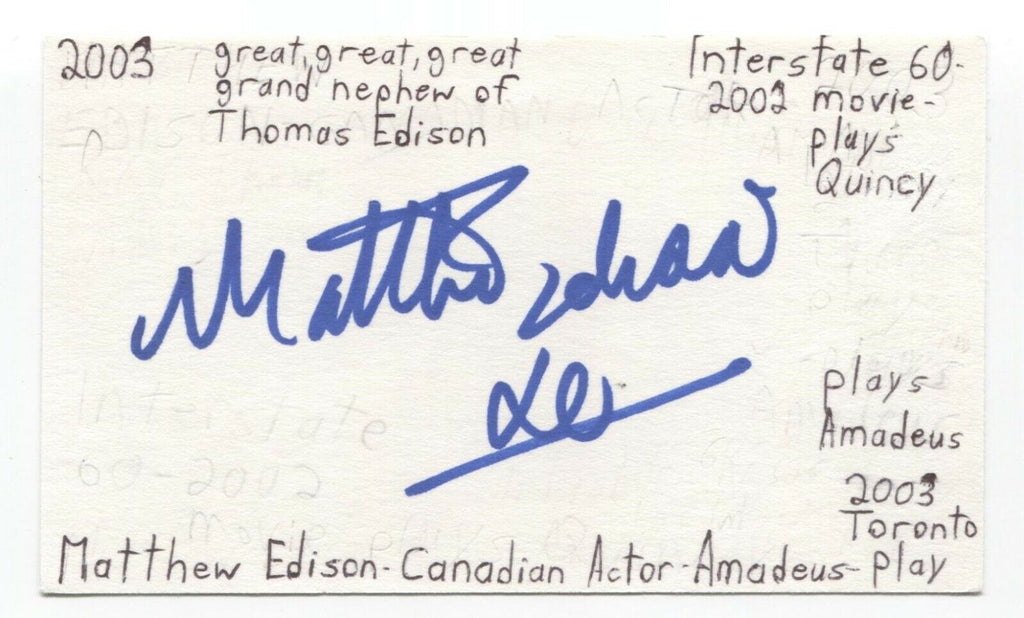 2003
great, great, great
grand nephew of
Thomas Edison
Interstate 60-
2002 movie-
plays
Quincy
Matthew Edison
plays
Amadeus
2003
Toronto
Matthew Edison-Canadian Actor-Amadeus-Play